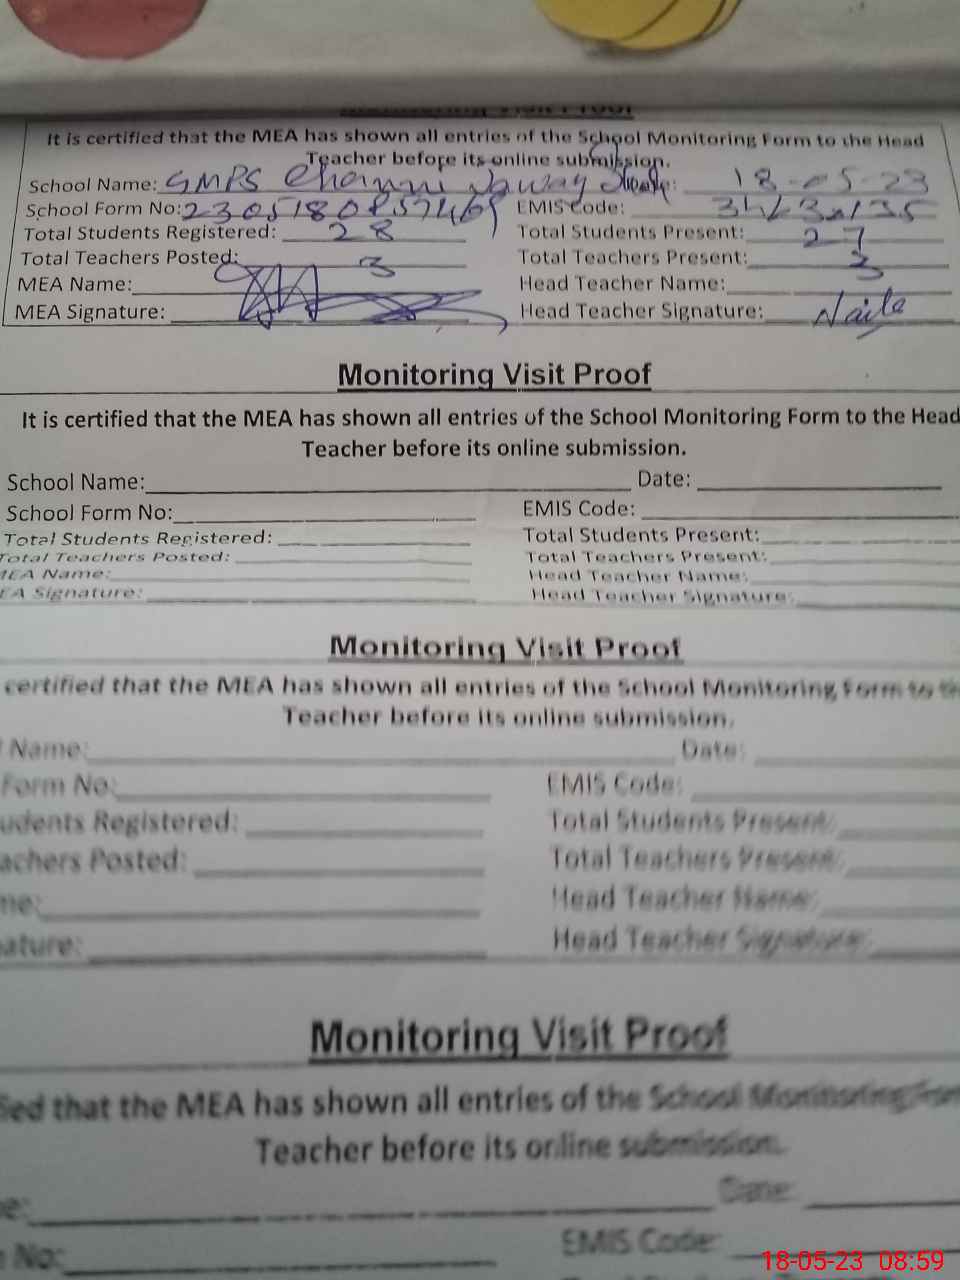 Monitoring Visit Proof
It is certified that the MEA has shown all entries of the School Monitoring Form to the Head
Teacher before its online submission.
School Name: GMPS 18-05-23
School Form No: EMIS Code:
Total Students Registered: 28 Total Students Present: 27
Total Teachers Posted: 3 Total Teachers Present: 3
MEA Name: Head Teacher Name:
MEA Signature: Head Teacher Signature: Naila
Monitoring Visit Proof
It is certified that the MEA has shown all entries of the School Monitoring Form to the Head
Teacher before its online submission.
School Name: Date:
School Form No: EMIS Code:
Total Students Registered: Total Students Present:
Total Teachers Posted: Total Teachers Present:
MEA Name: Head Teacher Name:
EA Signature: Head Teacher Signature:
Monitoring Visit Proof
certified that the MEA has shown all entries of the School Monitoring Form to
Teacher before its online submission.
Name: Date:
Form No: EMIS Code:
udents Registered: Total Students Present:
achers Posted: Total Teachers Present:
me: Head Teacher Name:
nature: Head Teacher Signature:
Monitoring Visit Proof
fied that the MEA has shown all entries of the School Monitoring
Teacher before its online submission.
e: Date:
No: EMIS Code:
18-05-23 08:59